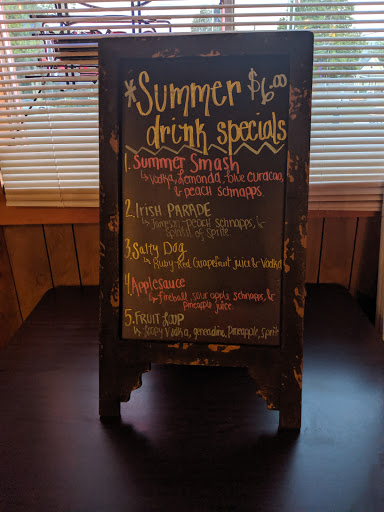 *Summer $6.00
drink specials
1. Summer Smash
↳ Vodka, Lemonda, blue curacao,
& peach schnapps
2. IRISH PARADE
↳ Jameson, peach schnapps, &
of Sprite
3. Salty Dog
↳ Ruby-Red Grapefruit juice & Vodka
4. Applesauce
↳ fireball, sour apple schnapps, &
pineapple juice.
5. FRUIT LOOP
↳ Loopy Vodka, grenadine, pineapple, Sprite